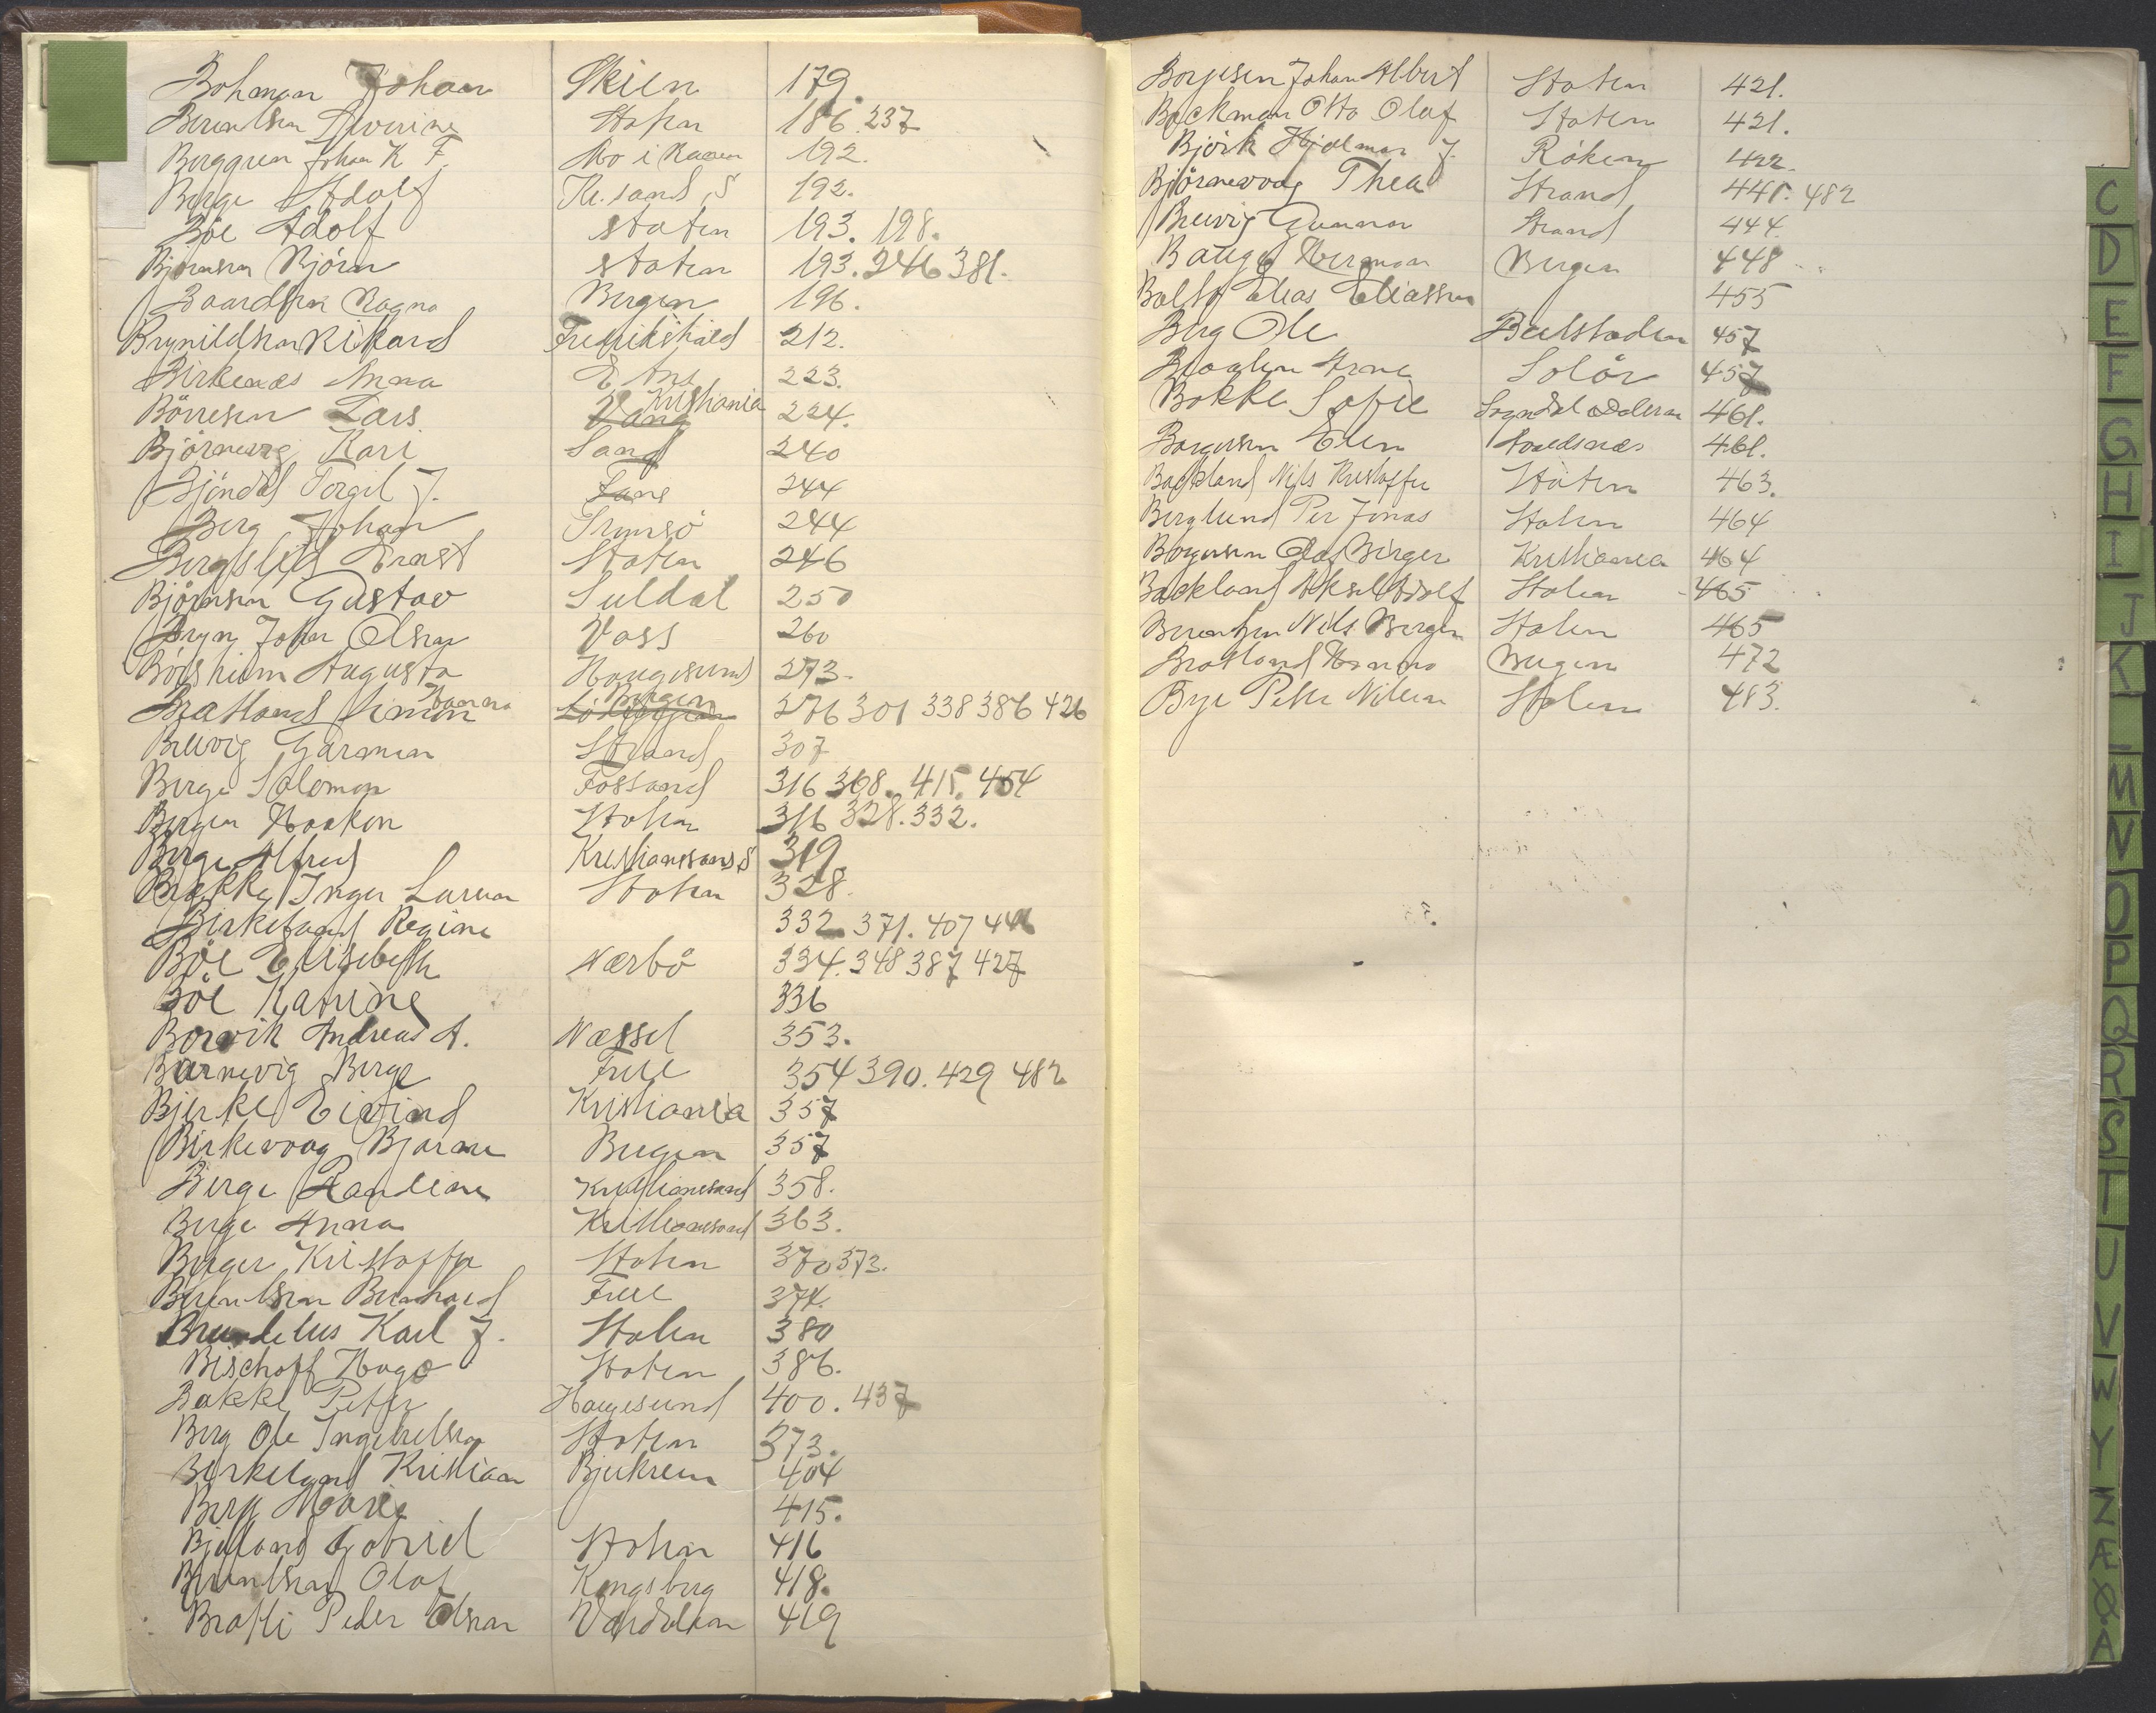 Bohman Johan Skien 179.
Berentsen Severine Staten 186. 237
Berggren Johan K F. Mo i Ranen 192.
Berge Adolf Kr. sand S 192.
Böe Adolf Staten 193. 198.
Bjørnsen Björn Staten 193. 246 381.
Baardsen Magna Bergen 196.
Brynildsen Rikard Fredrikshald 212.
Birkenæs Anna 223.
Börresen Lars Vang Kristiania 224.
Björnevig Kari Sand 240
Bjöndal Torgil J. 244
Berg Johan Tromsö 244
Bergslid Ernst Staten 246
Björnsen Gustav Suldal 250
Bryn Johan Olsen Voss 260
Börsheim Augusta Haugesund 273.
Bratland Simon Hanna Bergen 276 301 338 386 426
Brevig Garmen Strand 307
Berge Salomon Fossand 316 368. 415. 454
Bergen Haakon Staten 316 328. 332.
Berge Alfred Kristianssand S 319
Bække Inger Larsen Staten 328.
Birkeland Regine 332. 371. 407 446
Böe Elisebeth Nærbö 334. 348 387 427
Böe Katrine 336
Borvik Andreas A. Næssel 353.
Barnevig Berge Free 354 390. 429 482
Bjerke Eivind Kristiania 357
Birkevaag Bjarne Bergen 357
Berge Randine Kristianssand 358.
Berge Anna Kristianssand 363.
Berger Kristoffer Staten 370 373.
Berentsen Bernhard Free 374.
Karl J. Staten 380
Bischoff Hugo Staten 386.
Bakke Peter Haugesund 400. 437
Berg Ole Ingebretsen Staten 373.
Birkeland Kristian Bjerkreim 404
Berg Marie 415.
Bjelland Gabriel Staten 416
Berentsen Olaf Kongsberg 418.
Bratli Peder Olsen Vardalen 419
Borgesen Johan Albert Staten 421.
Backman Otto Olaf Staten 421.
Björk Hjalmar J. Röken 422.
Björnevaag Thea Strand 441. 482
Brevig Gunnar Strand 444.
Bauge Herman Bergen 448
Balto Elias Eliassen 455
Berg Ole Beitstaden 457
Braaten Arne Solör 457
Bakke Sofie Sogndal Dalerne 461.
Borgersen Ellen 461.
Backland Nils Kristoffer Staten 463.
Berglund Per Jonas Staten 464
Borgersen Olaf Birger Kristiania 464
Backland Aksel Adolf Staten 465
Berentsen Nils Bergen Staten 465
Bratland Hanna Bergen 472
Bye Peter Nilsen Staten 483.
C
D
E
F
G
H
I
J
K
L
M
N
O
P
Q
R
S
T
U
V
W
Y
Z
Æ
Ø
Å